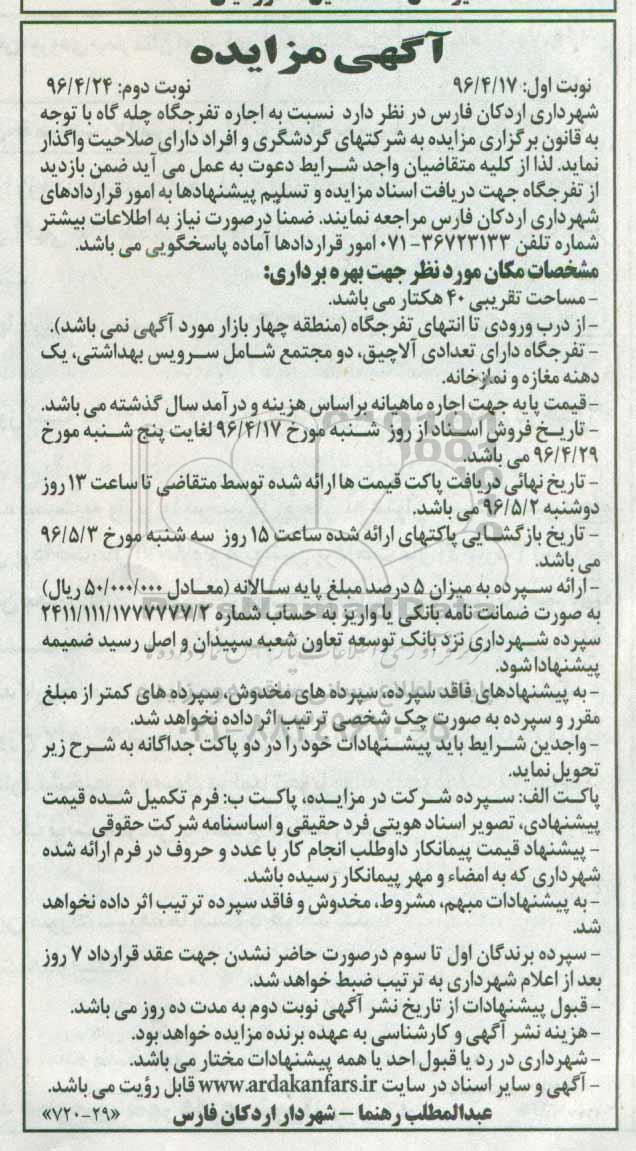 آگهی مزایده
نوبت اول: ۹۶/۴/۱۷ نوبت دوم: ۹۶/۴/۲۴
شهرداری اردکان فارس در نظر دارد نسبت به اجاره تفرجگاه چله گاه با توجه
به قانون برگزاری مزایده به شرکتهای گردشگری و افراد دارای صلاحیت واگذار
نماید. لذا از کلیه متقاضیان واجد شرایط دعوت به عمل می آید ضمن بازدید
از تفرجگاه جهت دریافت اسناد مزایده و تسلیم پیشنهادها به امور قراردادهای
شهرداری اردکان فارس مراجعه نمایند. ضمناً درصورت نیاز به اطلاعات بیشتر
شماره تلفن ۳۶۷۲۳۱۳۳-۰۷۱ امور قراردادها آماده پاسخگویی می باشد.
مشخصات مکان مورد نظر جهت بهره برداری:
- مساحت تقریبی ۴۰ هکتار می باشد.
- از درب ورودی تا انتهای تفرجگاه (منطقه چهار بازار مورد آگهی نمی باشد).
- تفرجگاه دارای تعدادی آلاچیق، دو مجتمع شامل سرویس بهداشتی، یک
دهنه مغازه و نمازخانه.
- قیمت پایه جهت اجاره ماهیانه براساس هزینه و درآمد سال گذشته می باشد.
- تاریخ فروش اسناد از روز شنبه مورخ ۹۶/۴/۱۷ لغایت پنج شنبه مورخ
۹۶/۴/۲۹ می باشد.
- تاریخ نهائی دریافت پاکت قیمت ها ارائه شده توسط متقاضی تا ساعت ۱۳ روز
دوشنبه ۹۶/۵/۲ می باشد.
- تاریخ بازگشایی پاکتهای ارائه شده ساعت ۱۵ روز سه شنبه مورخ ۹۶/۵/۳
می باشد.
- ارائه سپرده به میزان ۵ درصد مبلغ پایه سالانه (معادل ۵۰/۰۰۰/۰۰۰ ریال)
به صورت ضمانت نامه بانکی یا واریز به حساب شماره ۲۴۱۱/۱۱۱/۱۷۷۷۷۷۷/۲
سپرده شهرداری نزد بانک توسعه تعاون شعبه سپیدان و اصل رسید ضمیمه
پیشنهادا شود.
- به پیشنهادهای فاقد سپرده، سپرده های مخدوش، سپرده های کمتر از مبلغ
مقرر و سپرده به صورت چک شخصی ترتیب اثر داده نخواهد شد.
- واجدین شرایط باید پیشنهادات خود را در دو پاکت جداگانه به شرح زیر
تحویل نماید.
پاکت الف: سپرده شرکت در مزایده، پاکت ب: فرم تکمیل شده قیمت
پیشنهادی، تصویر اسناد هویتی فرد حقیقی و اساسنامه شرکت حقوقی
- پیشنهاد قیمت پیمانکار داوطلب انجام کار با عدد و حروف در فرم ارائه شده
شهرداری که به امضاء و مهر پیمانکار رسیده باشد.
- به پیشنهادات مبهم، مشروط، مخدوش و فاقد سپرده ترتیب اثر داده نخواهد
شد.
- سپرده برندگان اول تا سوم درصورت حاضر نشدن جهت عقد قرارداد ۷ روز
بعد از اعلام شهرداری به ترتیب ضبط خواهد شد.
- قبول پیشنهادات از تاریخ نشر آگهی نوبت دوم به مدت ده روز می باشد.
- هزینه نشر آگهی و کارشناسی به عهده برنده مزایده خواهد بود.
- شهرداری در رد یا قبول احد یا همه پیشنهادات مختار می باشد.
- آگهی و سایر اسناد در سایت www.ardakanfars.ir قابل رؤیت می باشد.
عبدالمطلب رهنما - شهردار اردکان فارس «۲۹-۷۲۰»